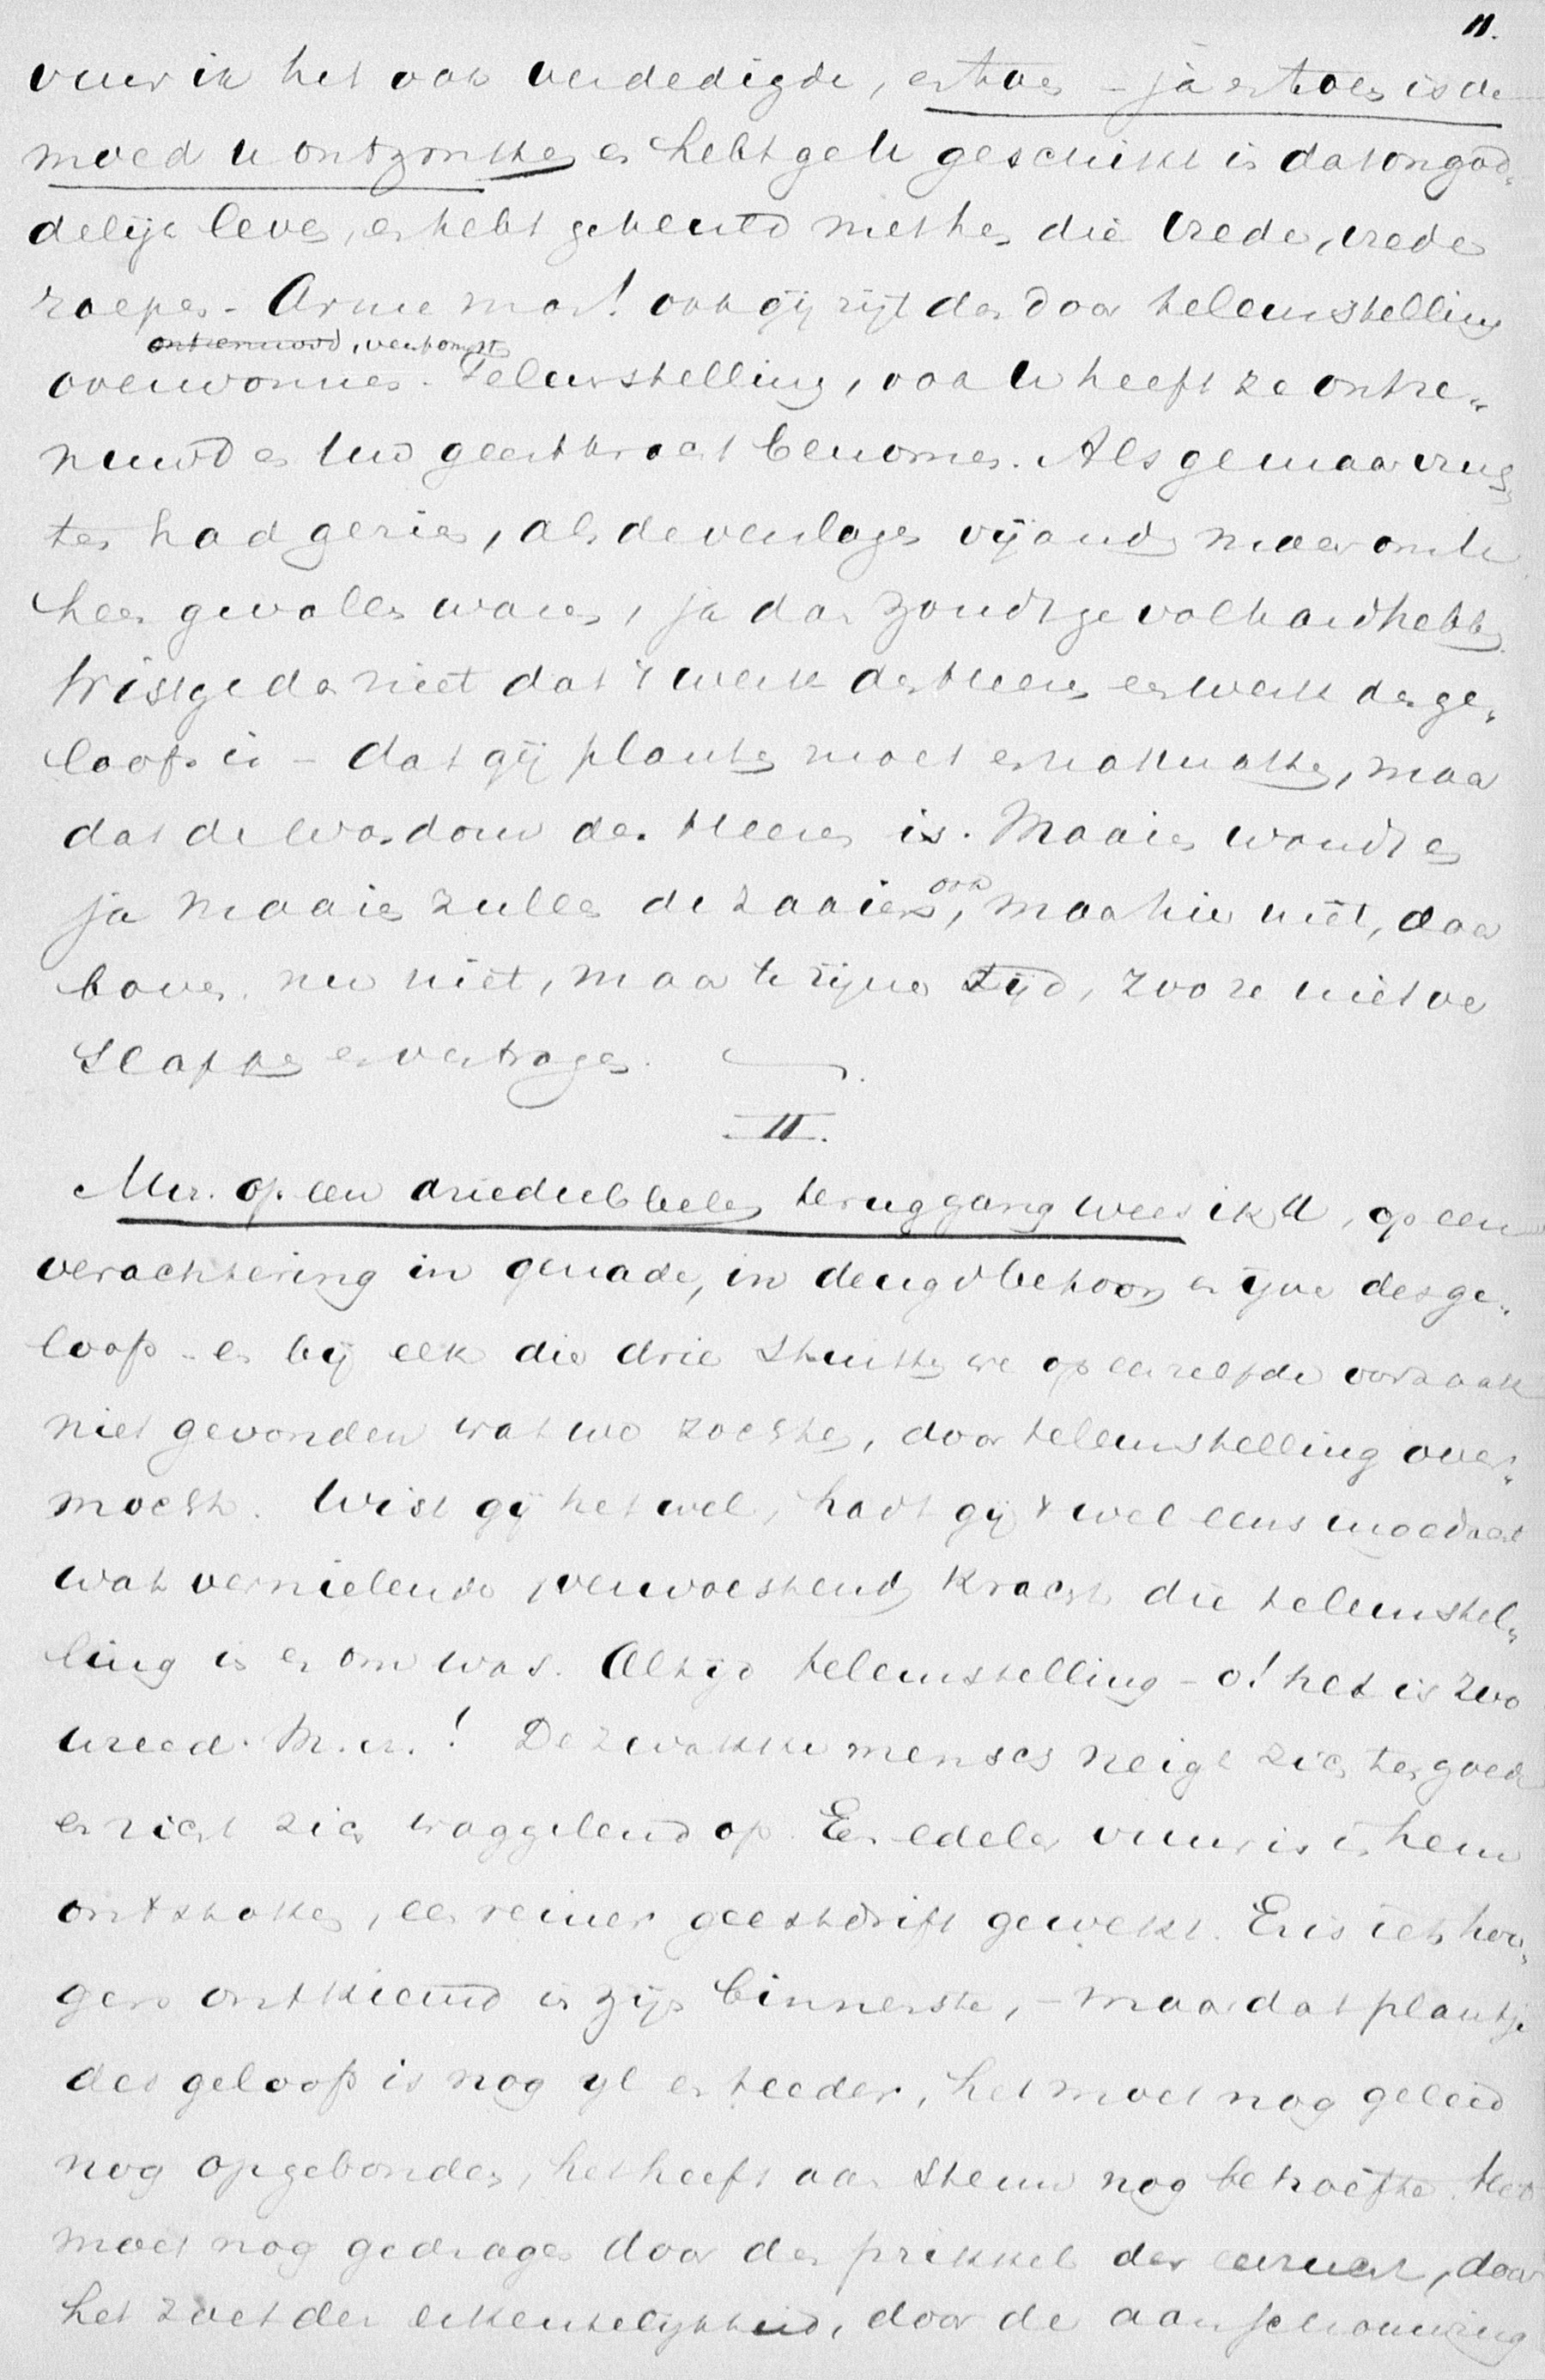 11.
vuur ik het ook verdedigde, ertoe – ja ertoe is de
moed u ontzonken en hebt ge u geschikt in dat ongod„
delijk leven, en hebt gekeuvd met hen die vrede, vrede
roepen – Arme man! ook gij zijt dan door teleurstelling
ontzenuwd, verstompt
overwonnen. Teleurstelling, ook u heeft ze ontze„
nuwd en uw geestkracht benomen. Als ge maar vruch„
ten had gezien, als de verslagen vijanden maar om u
heen gevallen waren, ja dan zoudt ge volhard hebben
Wist ge dan niet dat 't werk des Heeren een werk des ge„
loofs is – dat gij planten moet en natmaken, maar
dat de wasdom des Heeren is. Maaien wondt en
ja maaien zullen de zaaiers ook, maar hier niet, daar
boven, nu niet, maar te zijner tijd, zoo ze niet ver
slappen en vertragen.
II.
M.v. op een driedubbelen teruggang wees ik U, op een
verachtering in genade, in deugdbetoon en ijver des ge„
loofs – en bij elk die drie stuitten we op eenzelfde oorzaak
niet gevonden wat we zochten, door teleurstelling over„
mocht. Wist gij het wel, hadt gij 't wel eens ingedacht
wat vernielende, verwoestende kracht die teleurstel„
ling is en om was. Altijd teleurstelling – o! het is zoo
wreed. M.v.! De zwakke mensch neigt zich ten goede
en richt zich waggelend op. Een edeler vuur is in hem
ontstoken, een reiner geestdrift gewekt. Er is iets hoo„
gers ontkiemd in zijn binnenste, – maar dat plantje
des geloofs is nog ijl en teeder, het moet nog geleid
nog opgebonden, het heeft aan steun nog behoefte. Het
moet nog gedragen door den prikkel der eerzucht, door
het zoet der erkentelijkheid, door de aanschouwing